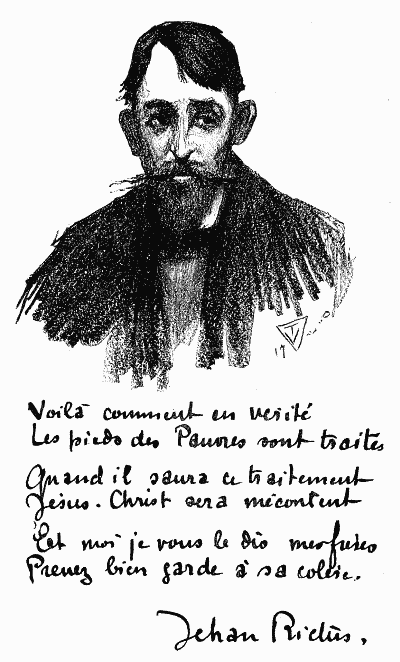 Voilà comment en vérité
Les pieds des Pauvres sont traités
Quand il saura ce traitement
Jésus-Christ sera mécontent
Et moi je vous le dis mes frères
Prenez bien garde à sa colère.
Jehan Rictus.